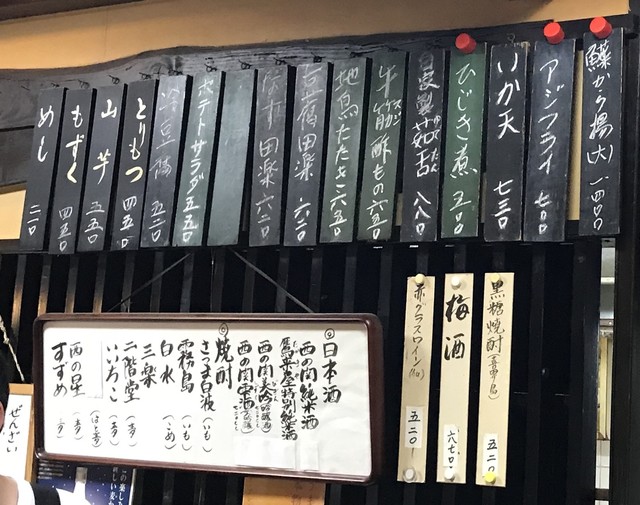 鰈から揚(大) 一四〇〇
アジフライ 七〇〇
いか天 七三〇
ひじき煮 五〇〇
自家製茹舌 八八〇
牛筋酢もの 六五〇
地鳥たたき 六五〇
豆腐田楽 六二〇
田楽 六二〇
ポテトサラダ 五五〇
冷豆腐 五二〇
とりもつ 四五〇
山芋 五五〇
もずく 四五〇
めし 二一〇
黒糖焼酎(喜界島) 五二〇
梅酒 六七〇
赤グラスワイン(仙) 五二〇
◎日本酒
西の関純米酒
鷹来屋特別純米酒
西の関美吟
西の関雫酒
◎焼酎
さつま白波(いも)
霧島(いも)
白水(こめ)
三楽
二階堂(麦)
いいちこ(麦)
西の星(麦)
すずめ(麦)
ぜんざい